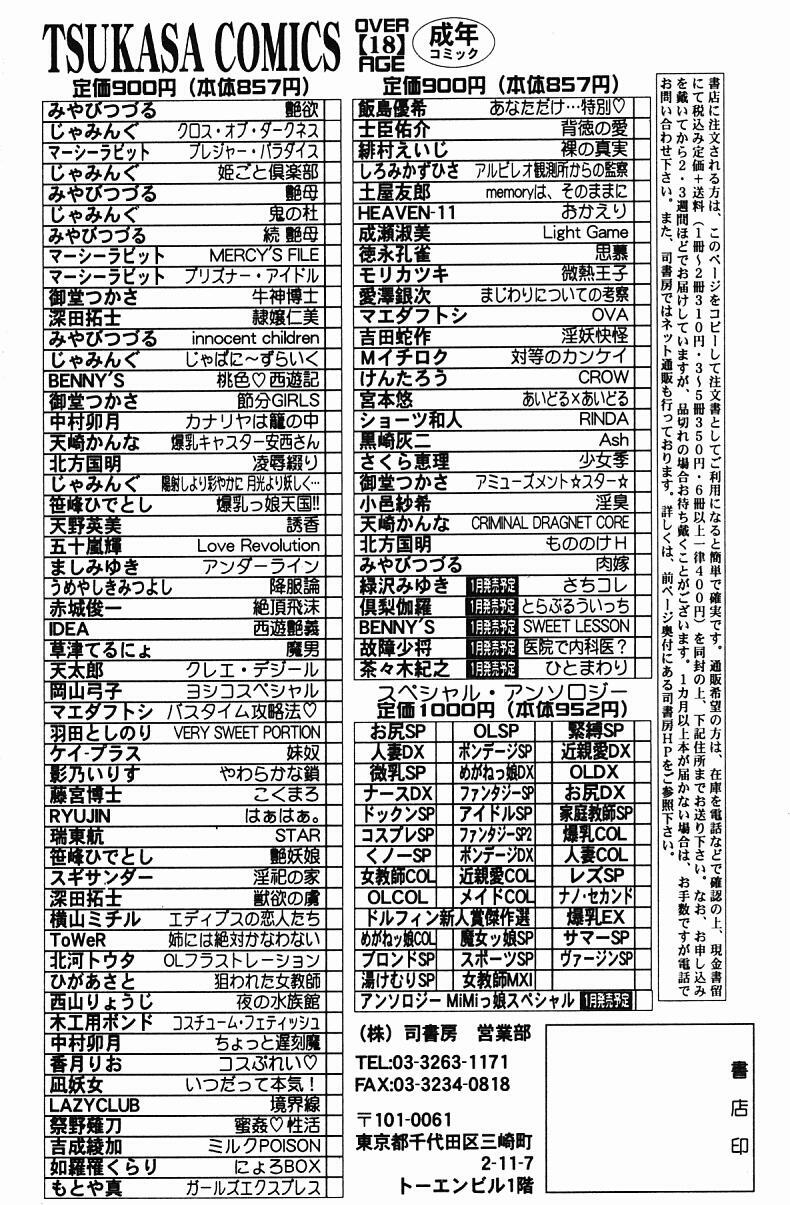 TSUKASA COMICS
OVER【18】AGE
成年コミック
定価900円（本体857円）
みやびつづる 艶欲
じゃみんぐ クロス・オブ・ダークネス
マーシーラビット プレジャー・パラダイス
じゃみんぐ 姫ごと倶楽部
みやびつづる 艶母
じゃみんぐ 鬼の杜
みやびつづる 続 艶母
マーシーラビット MERCY'S FILE
マーシーラビット プリズナー・アイドル
御堂つかさ 牛神博士
深田拓士 隷嬢仁美
みやびつづる innocent children
じゃみんぐ じゃぱに〜ずらいく
BENNY'S 桃色♡西遊記
御堂つかさ 節分GIRLS
中村卯月 カナリヤは籠の中
天崎かんな 爆乳キャスター安西さん
北方国明 凌辱綴り
じゃみんぐ 陽射しより彩やかに 月光より妖しく…
笹峰ひでとし 爆乳っ娘天国!!
天野英美 誘香
五十嵐輝 Love Revolution
ましみゆき アンダーライン
うめやしきみつよし 降服論
赤城俊一 絶頂飛沫
IDEA 西遊艶義
草津てるにょ 魔男
天太郎 クレエ・デジール
岡山弓子 ヨシコスペシャル
マエダフトシ バスタイム攻略法♡
羽田としのり VERY SWEET PORTION
ケイ-プラス 妹奴
影乃いりす やわらかな鎖
藤宮博士 こくまろ
RYUJIN はぁはぁ。
瑞東航 STAR
笹峰ひでとし 艶妖娘
スギサンダー 淫祀の家
深田拓士 獣欲の虜
横山ミチル エディプスの恋人たち
ToWeR 姉には絶対かなわない
北河トウタ OLフラストレーション
ひがあさと 狙われた女教師
西山りょうじ 夜の水族館
木工用ボンド コスチューム・フェティッシュ
中村卯月 ちょっと遅刻魔
香月りお コスぷれい♡
凪妖女 いつだって本気！
LAZYCLUB 境界線
祭野薙刀 蜜姦♡性活
吉成綾加 ミルクPOISON
如羅罹くらり にょろBOX
もとや真 ガールズエクスプレス
定価900円（本体857円）
飯島優希 あなただけ…特別♡
士臣佑介 背徳の愛
緋村えいじ 裸の真実
しろみかずひさ アルビレオ観測所からの監察
土屋友郎 memoryは、そのままに
HEAVEN-11 おかえり
成瀬淑美 Light Game
徳永孔雀 思慕
モリカツキ 微熱王子
愛澤銀次 まじわりについての考察
マエダフトシ OVA
吉田蛇作 淫妖快怪
Mイチロク 対等のカンケイ
けんたろう CROW
宮本悠 あいどる×あいどる
ショーツ和人 RINDA
黒崎灰二 Ash
さくら恵理 少女季
御堂つかさ アミューズメント☆スター☆
小邑紗希 淫臭
天崎かんな CRIMINAL DRAGNET CORE
北方国明 もののけH
みやびつづる 肉嫁
緑沢みゆき 1月発売予定 さちコレ
倶梨伽羅 1月発売予定 とらぶるういっち
BENNY'S 1月発売予定 SWEET LESSON
故障少将 1月発売予定 医院で内科医？
茶々木紀之 1月発売予定 ひとまわり
スペシャル・アンソロジー
定価1000円（本体952円）
お尻SP OLSP 緊縛SP
人妻DX ボンデージSP 近親愛DX
微乳SP めがねっ娘DX OLDX
ナースDX ファンタジーSP お尻DX
ドックンSP アイドルSP 家庭教師SP
コスプレSP ファンタジーSP2 爆乳COL
くノーSP ボンデージDX 人妻COL
女教師COL 近親愛COL レズSP
OLCOL メイドCOL ナノ・セカンド
ドルフィン新人賞傑作選 爆乳EX
めがねッ娘COL 魔女ッ娘SP サマーSP
ブロンドSP スポーツSP ヴァージンSP
湯けむりSP 女教師MXI
アンソロジー MiMiっ娘スペシャル 1月発売予定
書店に注文される方は、このページをコピーして注文書としてご利用になると簡単で確実です。通販希望の方は、在庫を電話などで確認の上、現金書留
にて税込み定価＋送料（1冊〜2冊310円・3〜5冊350円・6冊以上一律400円）を同封の上、下記住所までお送り下さい。なお、お申し込み
を戴いてから2・3週間ほどでお届けしていますが、品切れの場合お待ち戴くことがございます。1カ月以上本が届かない場合は、お手数ですが電話で
お問い合わせ下さい。また、司書房ではネット通販も行っております。詳しくは、前ページ奥付にある司書房HPをご参照下さい。
（株）司書房 営業部
TEL:03-3263-1171
FAX:03-3234-0818
〒101-0061
東京都千代田区三崎町
2-11-7
トーエンビル1階
書店印